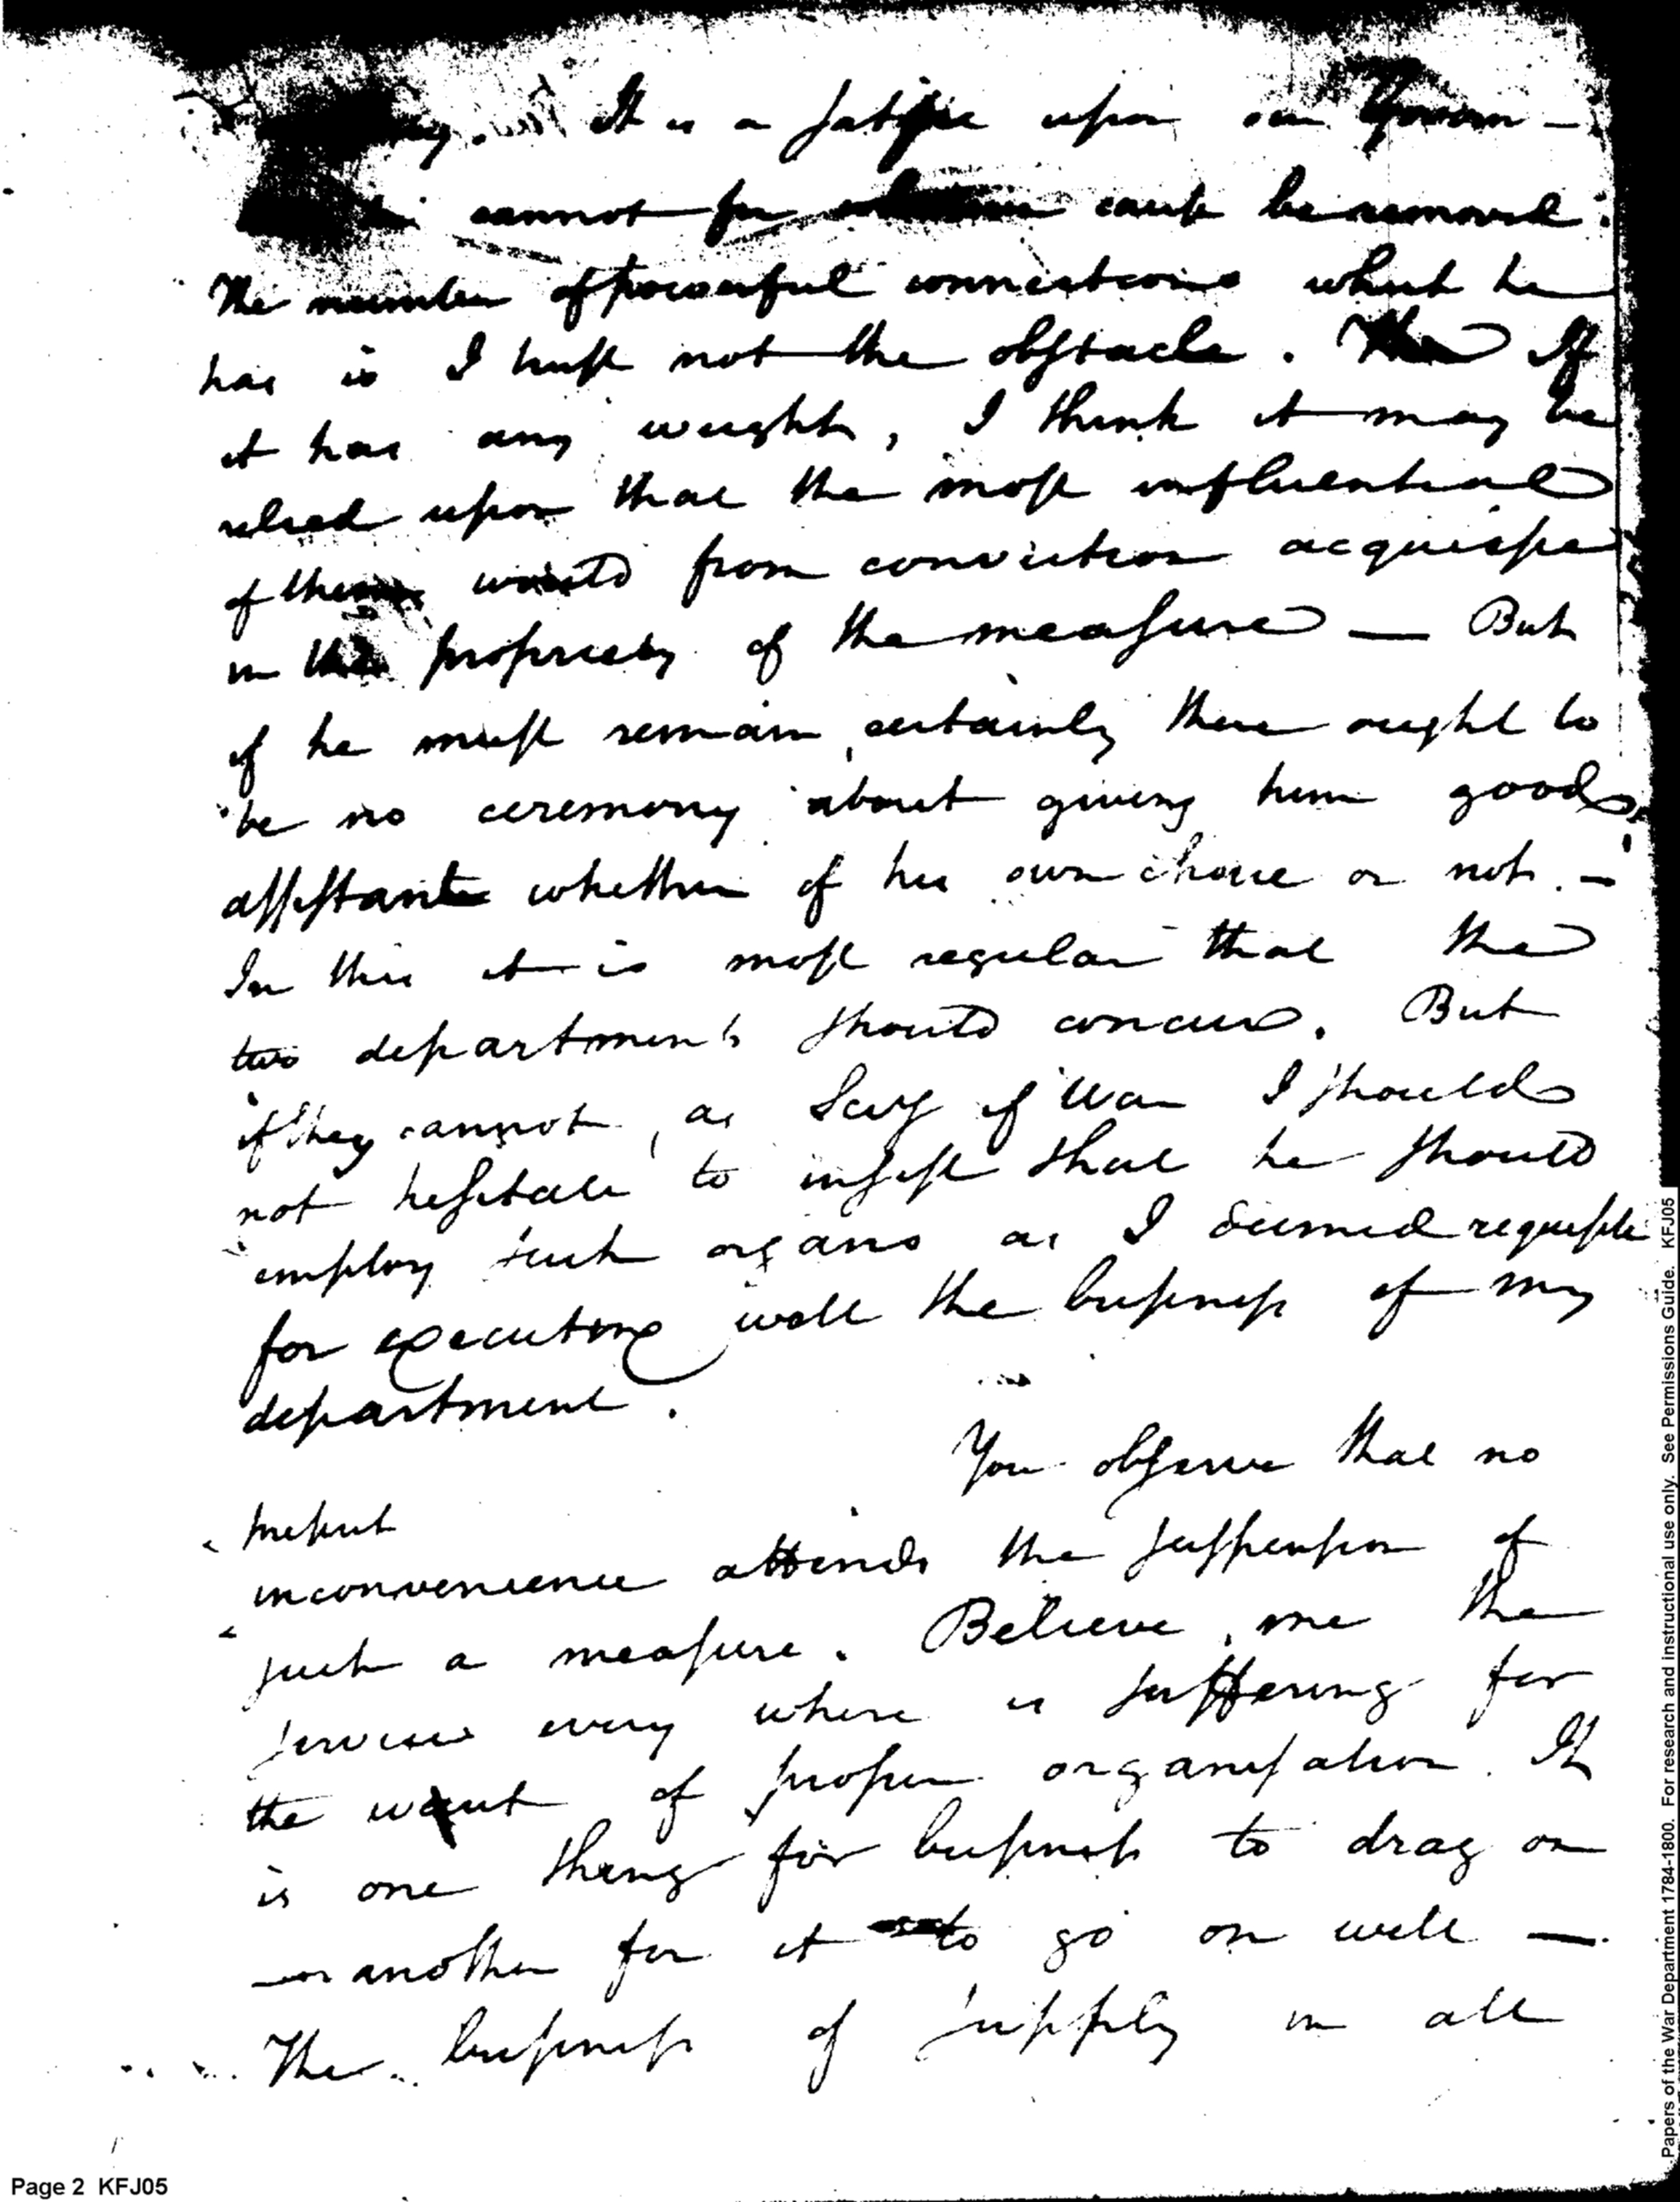 It is a satire upon our Govern-
cannot for cause be removed.
The number of powerful connections which he
has is I trust not the obstacle. If
it has any weight, I think it may be
relied upon that the most influential
of them would from conviction acquiesce
in the propriety of the measure — But
if he must remain, certainly there ought to
be no ceremony about giving him good
assistants whether of his own choice or not. —
In this it is most regular that the
two departments should concur. But
if they cannot, as Secy of War I should
not hesitate to insist that he should
employ such organs as I deemed requisite
for executing well the business of my
department.
You observe that no
present
inconvenience attends the suspension of
such a measure. Believe me the
service every where is suffering for
the want of proper organisation. It
is one thing for business to drag on
— another for it to go on well —
The business of supply in all
Page 2 KFJ05
Papers of the War Department 1784-1800. For research and instructional use only. See Permissions Guide. KFJ05